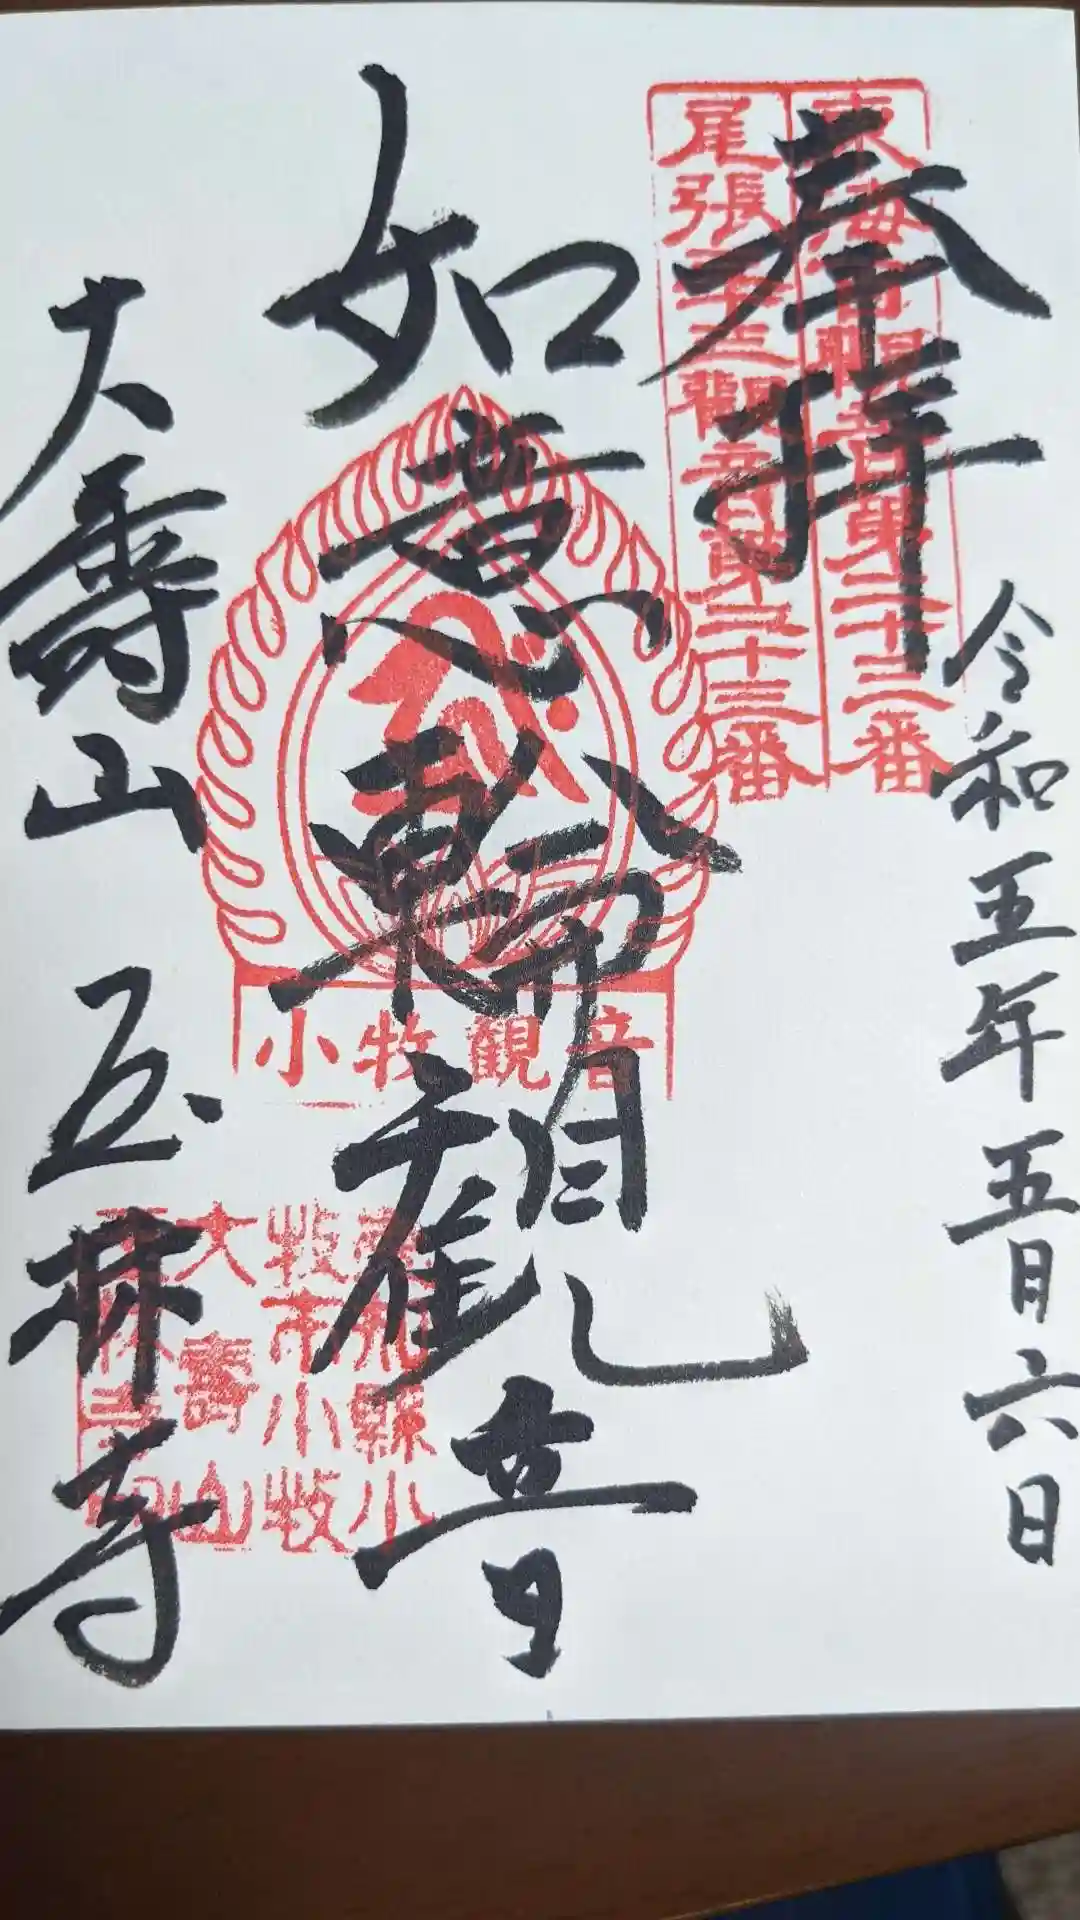 奉拝
令和五年五月六日
東海百観音第二十三番
尾張三十三観音第二十三番
如意輪観音
小牧観音
大寿山 玉林寺
愛知縣小
牧市小牧
大壽山